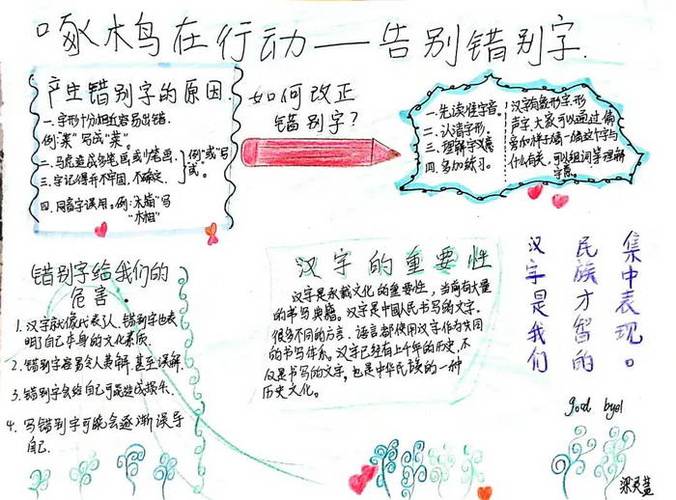 啄木鸟在行动——告别错别字.
产生错别字的原因.
一.字形十分相近容易出错.
写成"菜".
二.马虎造成多笔画或少笔画.
三.字记得并不牢固,不确定.
四.同音字误用.例:
如何改正
错别字?
一.先读准字音.
二.认清字形.
三.理解字义
四.多加练习.
汉字有象形字,形
声字,大家可以通过偏
什么有关,可以组词等理解
字意.
错别字给我们的
危害.
1.汉字就像代表人.错别字也表
明了自己本身的文化素质.
2.错别字容易令人费解,甚至误解.
3.错别字会给自己可能造成损失.
4.写错别字可能会逐渐误导
自己.
汉字的重要性
汉字是承载文化的重要性,当前有大量
的书写典籍.汉字是中国人民书写的文字.
很多不同的方言.语言都使用汉字作为共同
的书写体系.汉字已经有上千年的历史,不
仅是书写的文字,也是中华民族的一种
历史文化.
汉字是我们
民族才智的
集中表现。
good bye!